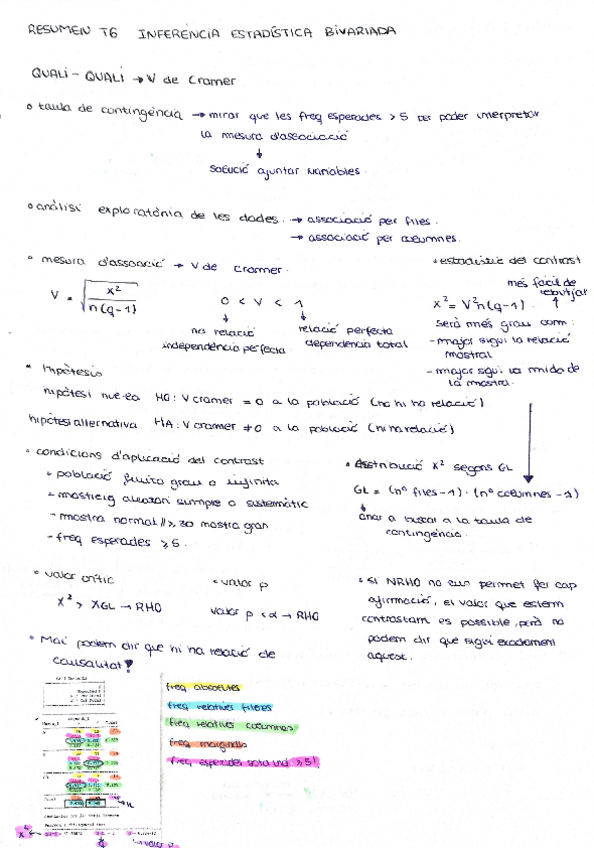 RESUMEN T6 INFERENCIA ESTADÍSTICA BIVARIADA
QUALI - QUALI → V de Cramer
taula de contingència → mirar que les freq esperades > 5 per poder interpretar
la mesura d'associació
↓
solució ajuntar variables.
anàlisi exploratòria de les dades. → associació per files.
→ associació per columnes.
mesura d'associació → V de Cramer.
V = √ x² / n(q-1)
0 < V < 1
no relació
independència perfecta
relació perfecta
dependència total
estadístic del contrast
més fàcil de
rebutjar
x² = V²n(q-1). ↑
serà més gran com:
- major sigui la relació
mostral
- major sigui la mida de
la mostra.
Hipòtesis
hipòtesi nul·la H0: V cramer = 0 a la població (no hi ha relació)
hipòtesi alternativa HA: V cramer ≠ 0 a la població (hi ha relació)
condicions d'aplicació del contrast
població finita gran o infinita
mostreig aleatori simple o sistemàtic
- mostra normal // ≥ 30 mostra gran
- freq esperades ≥ 5.
distribució x² segons GL
GL = (nº files - 1) · (nº columnes - 1)
↓
anar a buscar a la taula de
contingència.
valor crític
x² > XGL → RHO
valor p
valor p < α → RHO
si NRHO no ens permet fer cap
afirmació, el valor que estem
contrastam es possible, però no
podem dir que sigui exactament
aquest.
Mai podem dir que hi ha relació de
causalitat!
freq absolutes
freq relatives fileres
freq relatives columnes
freq marginals
freq esperades ≥ 5!
x² ←
→ n
→ valor p